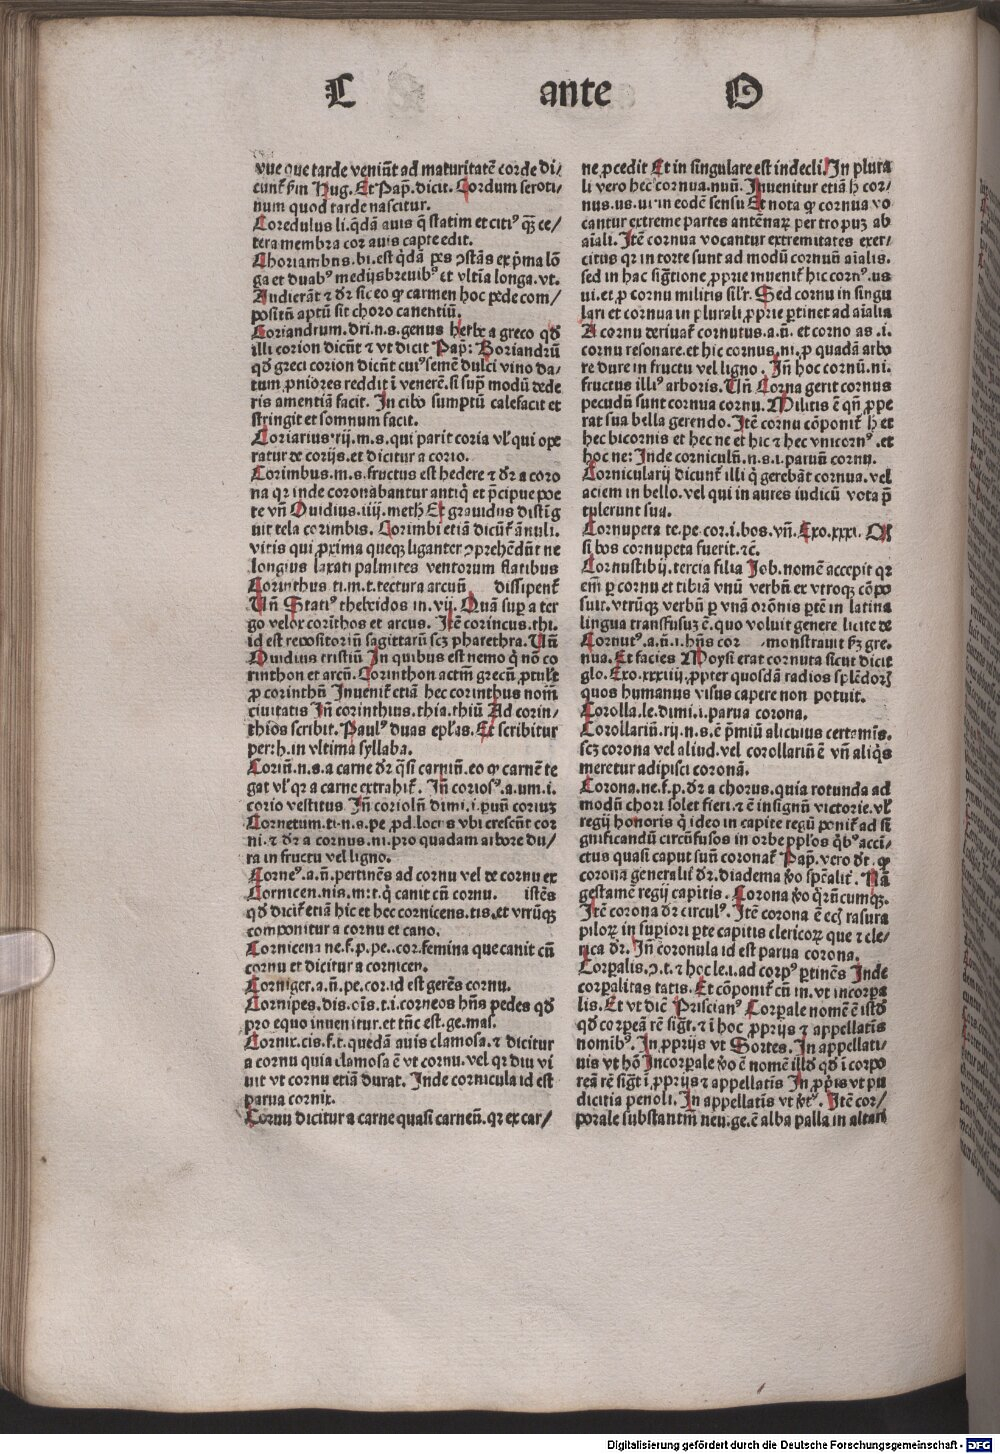 C ante O
vue que tarde veniūt ad maturitatē corde di/
cunt᷑ ẜm Hug. Et Pap̄. dicit. Cordum seroti/
num quod tarde nascitur.
Coredulus li. q̄dā auis q̄ statim et citiꝰ q̄ꝫ ce/
tera membra cor auis capte edit.
Choriambus. bi. est q̄dā pes ↄstās ex p̄ma lō
ga et duabꝰ medijs breuibꝰ et vltīa longa. vt.
Audierāt ⁊ dr̄ sic eo ꝙ carmen hoc pede com/
positū aptū sit choro canentiū.
Coriandrum. dri. n. s. genus herbe a greco qd̄
illi corion dicūt ⁊ vt dicit Pap̄: Boriandrū
qd̄ greci corion dicūt cuiꝰ semē dulci vino da/
tum ꝓniores reddit ī venerē. si suꝑ modū dede
ris amentiā facit. In cibo sumptū calefacit et
stringit et somnum facit.
Coriarius rij. m. s. qui parit coria vl̓ qui ope
ratur de corijs. et dicitur a corio.
Corimbus. m. s. fructus est hedere ⁊ dr̄ a coro
na qr inde coronabantur antiq̄ et p̄cipue poe
te vn̄ Ouidius. iiij. meth̄ Et grauidus distīg
uit tela corimbis. Corimbi etiā dicūt᷑ anuli.
vitis qui ꝓxima queqꝫ liganter ↄprehēdūt ne
longius laxati palmites ventorum flatibus
Corinthus. ti. m. t. tectura arcuū dissipent᷑
Un̄ Statiꝰ thebaidos in. vij. Quā suꝑ a ter
go velox corīthos et arcus. Itē corintus. thi.
id est repositoriū sagittarū scꝫ pharethra. Un̄
Ouidius tristiū In quibus est nemo q̄ nō co
rinthon et arcū. Corinthon actm̄ grecū ꝓtulit
ꝓ corinthū Inuenit᷑ etiā hec corinthus nomē
ciuitatis In̄ corinthius. thia. thiū Ad corin/
thios scribit. Paulꝰ duas ep̄las. Et scribitur
per. h. in vltima syllaba.
Coriū. n. s. a carne dr̄ q̄si carniū. eo ꝙ carnē te
gat vl̓ qr a carne extrahit᷑. In̄ coriosꝰ. a. um. i.
corio vestitus In̄ coriolū dimi. i. paruū corium
Cornetum. ti. n. s. pe ꝓd. locus vbi crescūt cor
ni. ⁊ dr̄ a cornus. ni. pro quadam arbore du/
ra in fructu vel ligno.
Corneꝰ. a. ū. pertinēs ad cornu vel de cornu ex
Cornicen. nis. m. t. q̄ canit cū cornu. istēs
qd̄ dicit᷑ etiā hic et hec cornicens. tis. et vtrūqꝫ
componitur a cornu et cano.
Cornicena ne. f. p. pe. cor. femina que canit cū
cornu et dicitur a cornicen.
Corniger. a. ū. pe. cor. id est gerēs cornu.
Cornipes. dis. oīs. t. i. corneos hn̄s pedes qd̄
pro equo inuenitur. et tūc est. ge. mas.
Cornix. cis. f. t. quedā auis clamosa. ⁊ dicitur
a cornu quia clamosa ē vt cornu. vel qr diu vi
uit vt cornu etiā durat. Inde cornicula id est
parua cornix.
Cornu dicitur a carne quasi carneū. qr ex car/
ne ꝓcedit Et in singulare est indecli. In plura
li vero hec cornua. nuū. Inuenitur etiā h̄ cor/
nus. us. ui in eodē sensu Et nota ꝙ cornua vo
cantur extreme partes antēnaꝝ per tropuꝫ ab
aīali. Itē cornua vocantur extremitates exer/
citus qr in torte sunt ad modū cornuū aīalis.
sed in hac sigtione ꝓprie inuenit᷑ hic cornꝰ. us
ui. et ꝓ cornu militis silr̄. Sed cornu in singu
lari et cornua in plurali ꝓprie ꝑtinet ad aīalia
A cornu deriuat᷑ cornutus. a. ū. et corno as. i.
cornu resonare. et hic cornus. ni. ꝓ quadā arbo
re dure in fructu vel ligno. In̄ hoc cornū. ni.
fructus illiꝰ arboris. Un̄ Corna gerit cornus
pecudū sunt cornua cornu. Militis ē qn̄ ꝓpe
rat sua bella gerendo. Itē cornu cōponit᷑ h̄ et
hec bicornis et hec ne et hic ⁊ hec vnicornꝰ. et
hoc ne: Inde corniculū. n. s. i. paruū cornu.
Cornicularij dicunt᷑ illi q̄ gerebāt cornua. vel
aciem in bello. vel qui in aures iudicū vota p̄
tulerunt sua.
Cornupeta te. pe. cor. i. bos. vn̄. Exo. xxxi. Qd̄
si bos cornupeta fuerit. ⁊c̄.
Cornustibij. tercia filia Job. nomē accepit qr
em̄ ꝑ cornu et tibiā vnū verbū ex vtroqꝫ cōpo
suit. vtrūqꝫ verbū ꝑ vnā orōnis ꝑtē in latina
lingua transfusuꝫ ē. quo voluit genere licite de
Cornutꝰ. a. ū. i. hn̄s cor monstrauit ẜꝫ gre.
nua. Et facies Moysi erat cornuta sicut dicit
glo. Exo. xxxiiij. ꝓpter quosdā radios splēdoꝝ
quos humanus visus capere non potuit.
Corolla. le. dimi. i. parua corona.
Corollariū. rij. n. s. ē p̄miū alicuius certamīs.
scꝫ corona vel aliud. vel corollariū ē vn̄ aliq̄s
meretur adipisci coronā.
Corona. ne. f. p. dr̄ a chorus. quia rotunda ad
modū chori solet fieri. ⁊ ē insignū victorie. vl̓
regij honoris q̄ ideo in capite regū ponit᷑ ad si
gnificandū circūfusos in orbe ppl̄os q̄bꝰ acci/
ctus quasi caput suū coronat᷑ Pap̄. vero dt̄. ꝙ
corona generalit̄ dr̄. diadema v̄o sp̄ealit̄. Nā
gestamē regij capitis. Corona v̄o q̄rn̄cumqꝫ.
Itē corona dr̄ circulꝰ. Itē corona ē ecī rasura
piloꝝ in suꝑiori ꝑte capitis clericoꝝ que ⁊ cle/
rica dr̄. In̄ coronula id est parua corona.
Corꝑalis. ↄ. t. ⁊ hoc le. i. ad corpꝰ ꝑtinēs Inde
corꝑalitas tatis. Et cōponit᷑ cū in. vt incorꝑa
lis. Et vt dicē Priscianꝰ Corꝑale nomē ē istd̄
qd̄ corpeā rē sigt̄. ⁊ ī hoc ꝓprijs ⁊ appellatīs
nomibꝰ. In ꝓprijs vt Sortes. In appellati/
uis vt hō Incorꝑale v̄o ē nomē illd̄ qd̄ ī corpo
reā rē sigt̄ ī ꝓprijs ⁊ appellatis In ꝓpīs vt pu
dicitia penoli. In appellatīs vt v̄tꝰ. Itē cor/
porale substantm̄ neu. ge. ē alba palla in altari
Digitalisierung gefördert durch die Deutsche Forschungsgemeinschaft - DFG